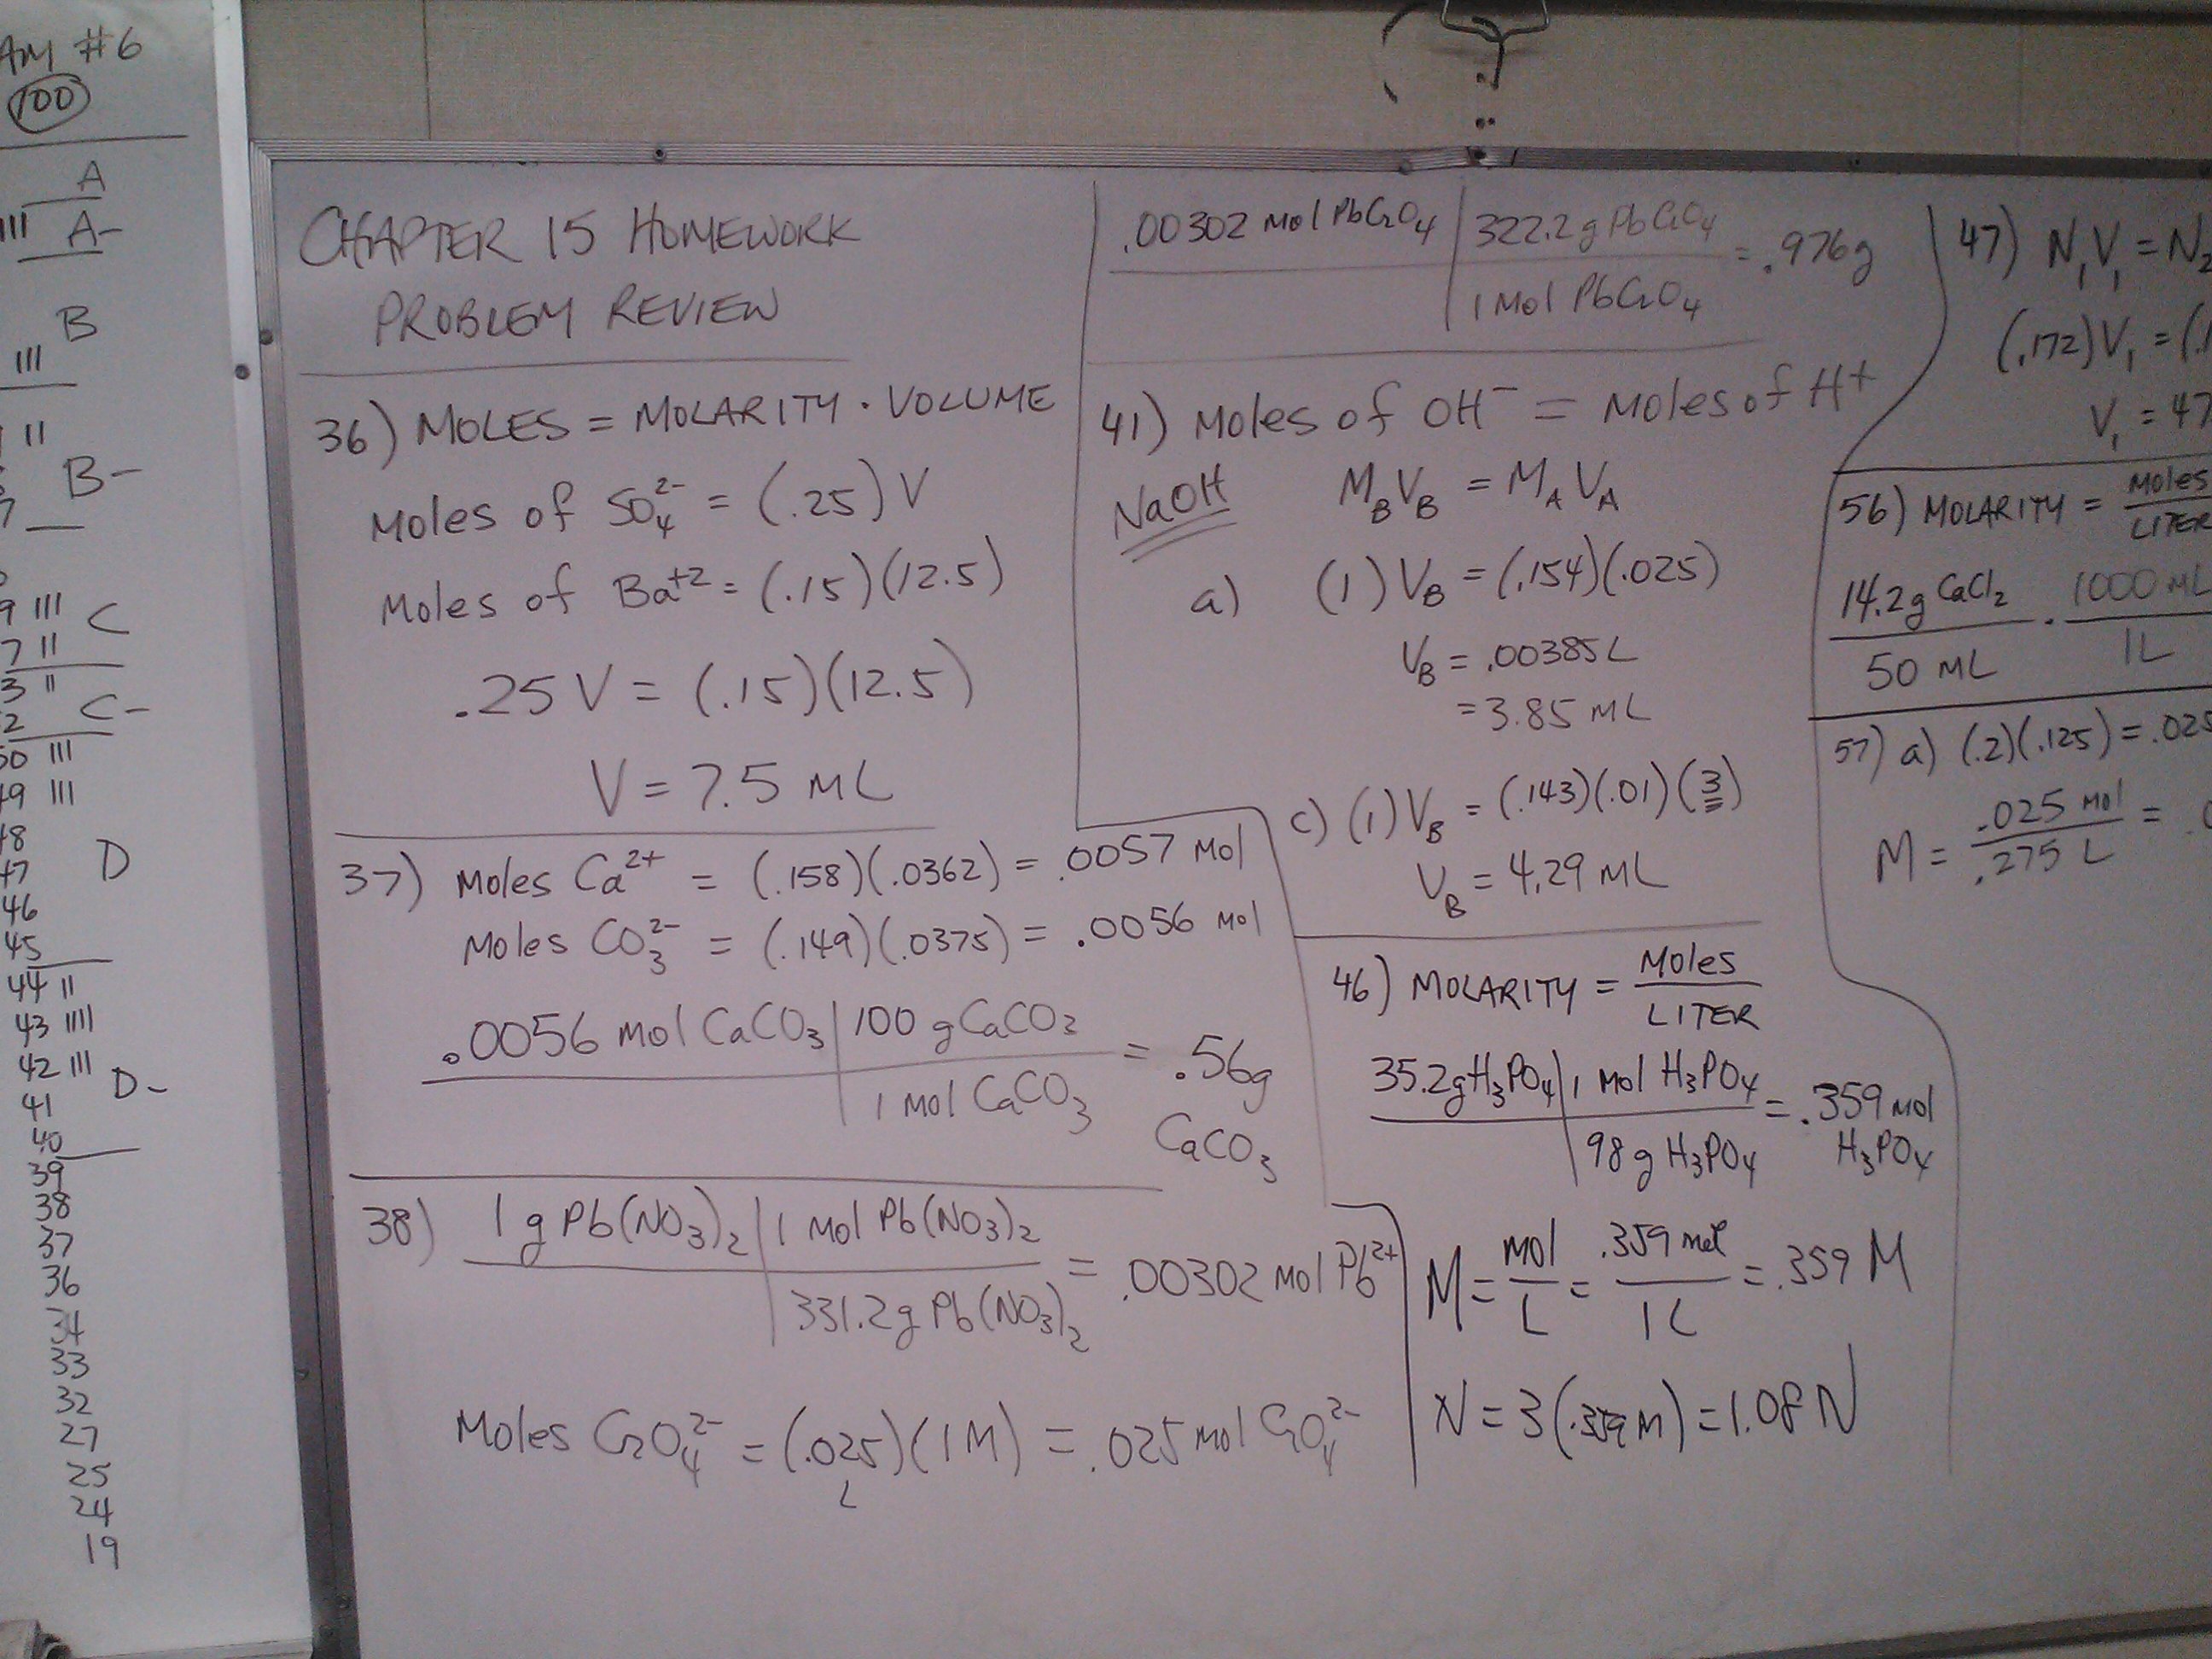 AM #6
100
A
III A-
B
III
II
B-
7
9 III C
7 II
3 II
2 C-
50 III
49 III
48
47 D
46
45
44 II
43 IIII
42 III
D-
41
40
39
38
37
36
34
33
32
27
25
24
19
CHAPTER 15 HOMEWORK
PROBLEM REVIEW
36) MOLES = MOLARITY · VOLUME
Moles of SO₄²⁻ = (.25) V
Moles of Ba⁺² = (.15)(12.5)
.25 V = (.15)(12.5)
V = 7.5 mL
37) Moles Ca²⁺ = (.158)(.0362) = .0057 mol
Moles CO₃²⁻ = (.149)(.0375) = .0056 mol
.0056 mol CaCO₃ | 100 g CaCO₃ = .56g
1 mol CaCO₃
CaCO₃
38) 1 g Pb(NO₃)₂ | 1 mol Pb(NO₃)₂ = .00302 mol Pb²⁺
331.2g Pb(NO₃)₂
Moles CrO₄²⁻ = (.025)(1M) = .025 mol CrO₄²⁻
L
.00302 mol PbCrO₄ | 322.2g PbCrO₄ = .976g
1 mol PbCrO₄
41) Moles of OH⁻ = Moles of H⁺
NaOH M_B V_B = M_A V_A
a) (1) V_B = (.154)(.025)
V_B = .00385L
= 3.85 mL
c) (1) V_B = (.143)(.01)(3)
V_B = 4.29 mL
46) MOLARITY = Moles
LITER
35.2g H₃PO₄ | 1 mol H₃PO₄ = .359 mol
98 g H₃PO₄ H₃PO₄
M = mol = .359 mol = .359 M
L 1 L
N = 3(.359 M) = 1.08 N
47) N₁V₁ = N₂
(.172)V₁ = (.1
V₁ = 47
56) MOLARITY = Moles
LITER
14.2g CaCl₂ · 1000 mL
50 mL 1L
57) a) (.2)(.125) = .025
M = .025 mol =
.275 L